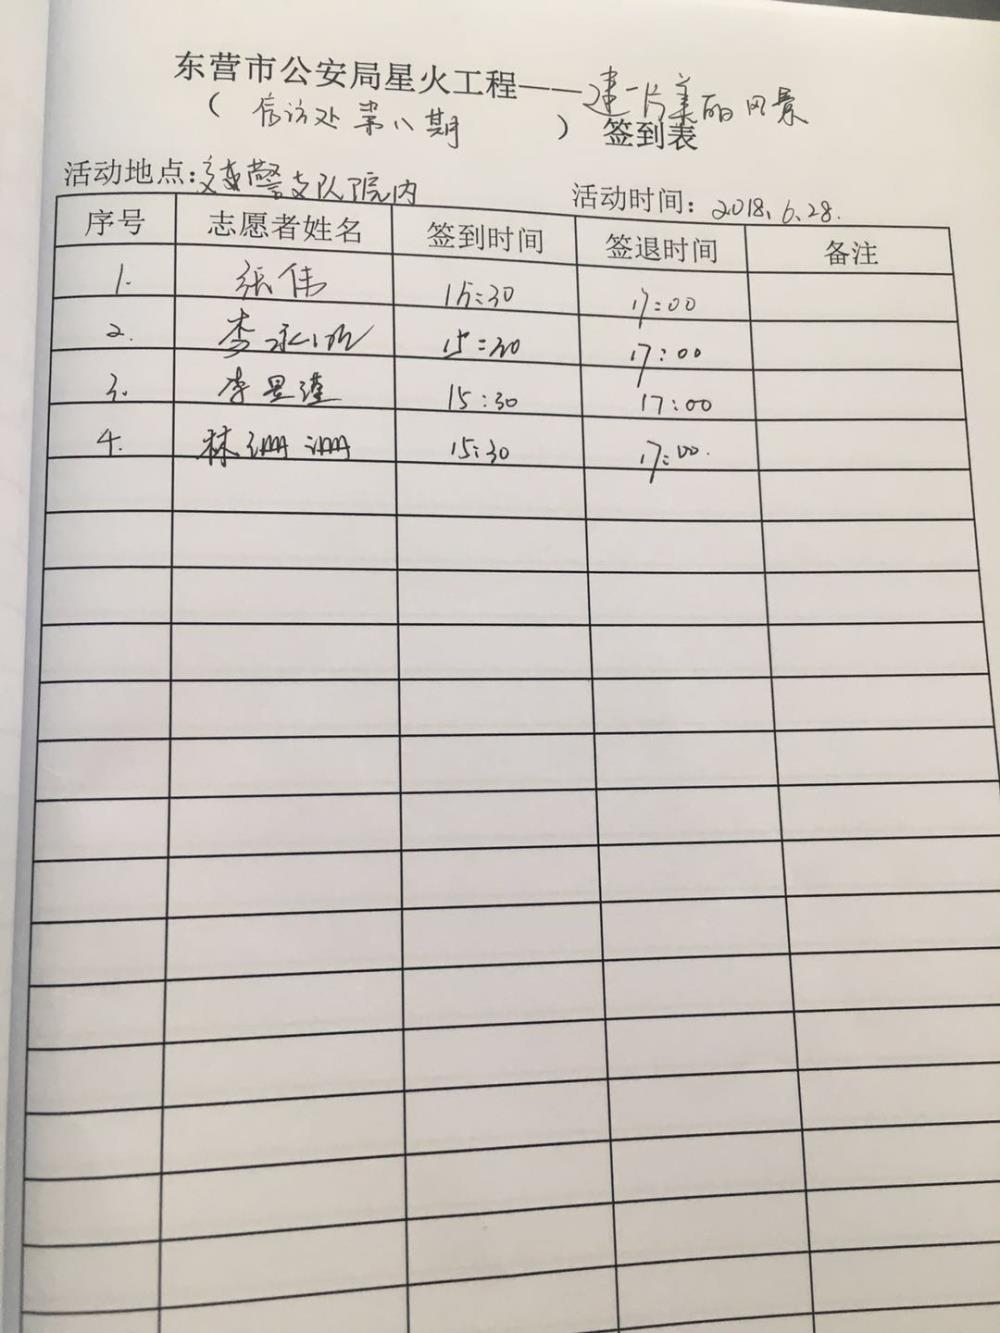 东营市公安局星火工程——建一片美丽风景
（信访处第八期）签到表
活动地点:交警支队院内 活动时间: 2018.6.28.
序号 志愿者姓名 签到时间 签退时间 备注
1. 张伟 15:30 17:00
2. 李 15:30 17:00
3. 李昱瑾 15:30 17:00
4. 林珊珊 15:30 17:00.